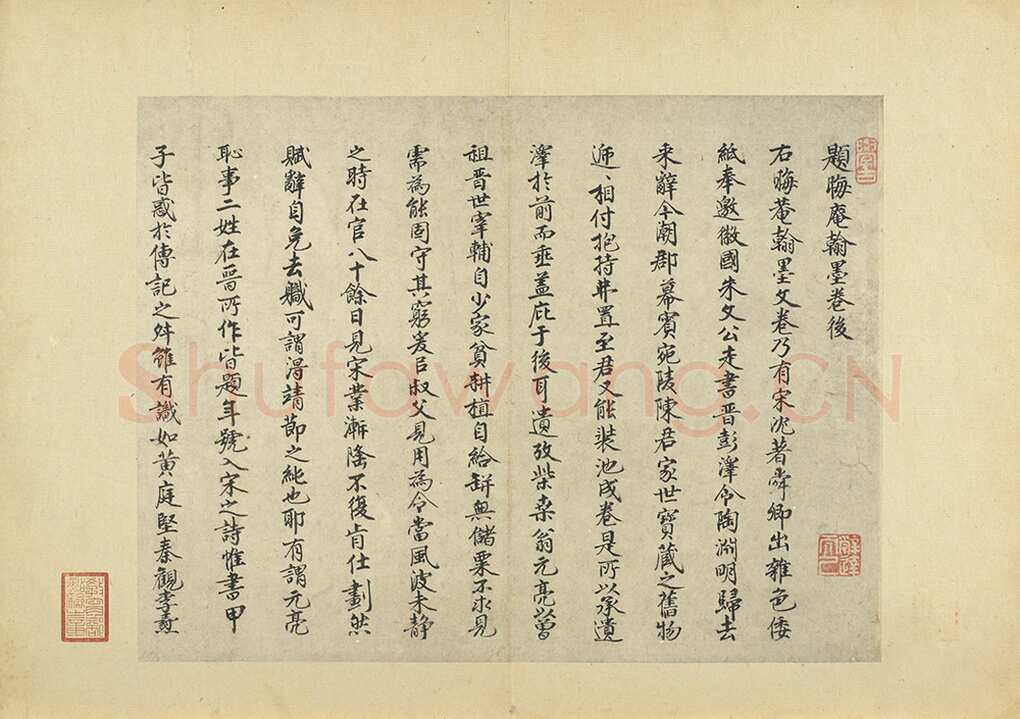 題晦庵翰墨卷後
右晦菴翰墨文卷乃有宋沈著舜卿出雜色倭
紙奉邀徽國朱文公走書晉彭澤令陶淵明歸去
来辭今潮郡幕賓宛陵陳君家世寶藏之舊物
遞〻相付抱持幷置至君又能裝池成卷是所以承遺
澤於前而垂蓋庇于後耳遺攷柴桑翁元亮以曾
祖晉世宰輔自少家貧耕植自給缾無儲粟不求見
需為能固守其窮爰后叔父見用為令當風波未静
之時在官八十餘日見宋業漸隆不復肯仕劃然
賦辭自免去職可謂得靖節之純也耶有謂元亮
恥事二姓在晉所作皆題年號入宋之詩惟書甲
子皆惑於傳記之舛雖有識如黄庭堅秦觀李燾
Shufawang.CN